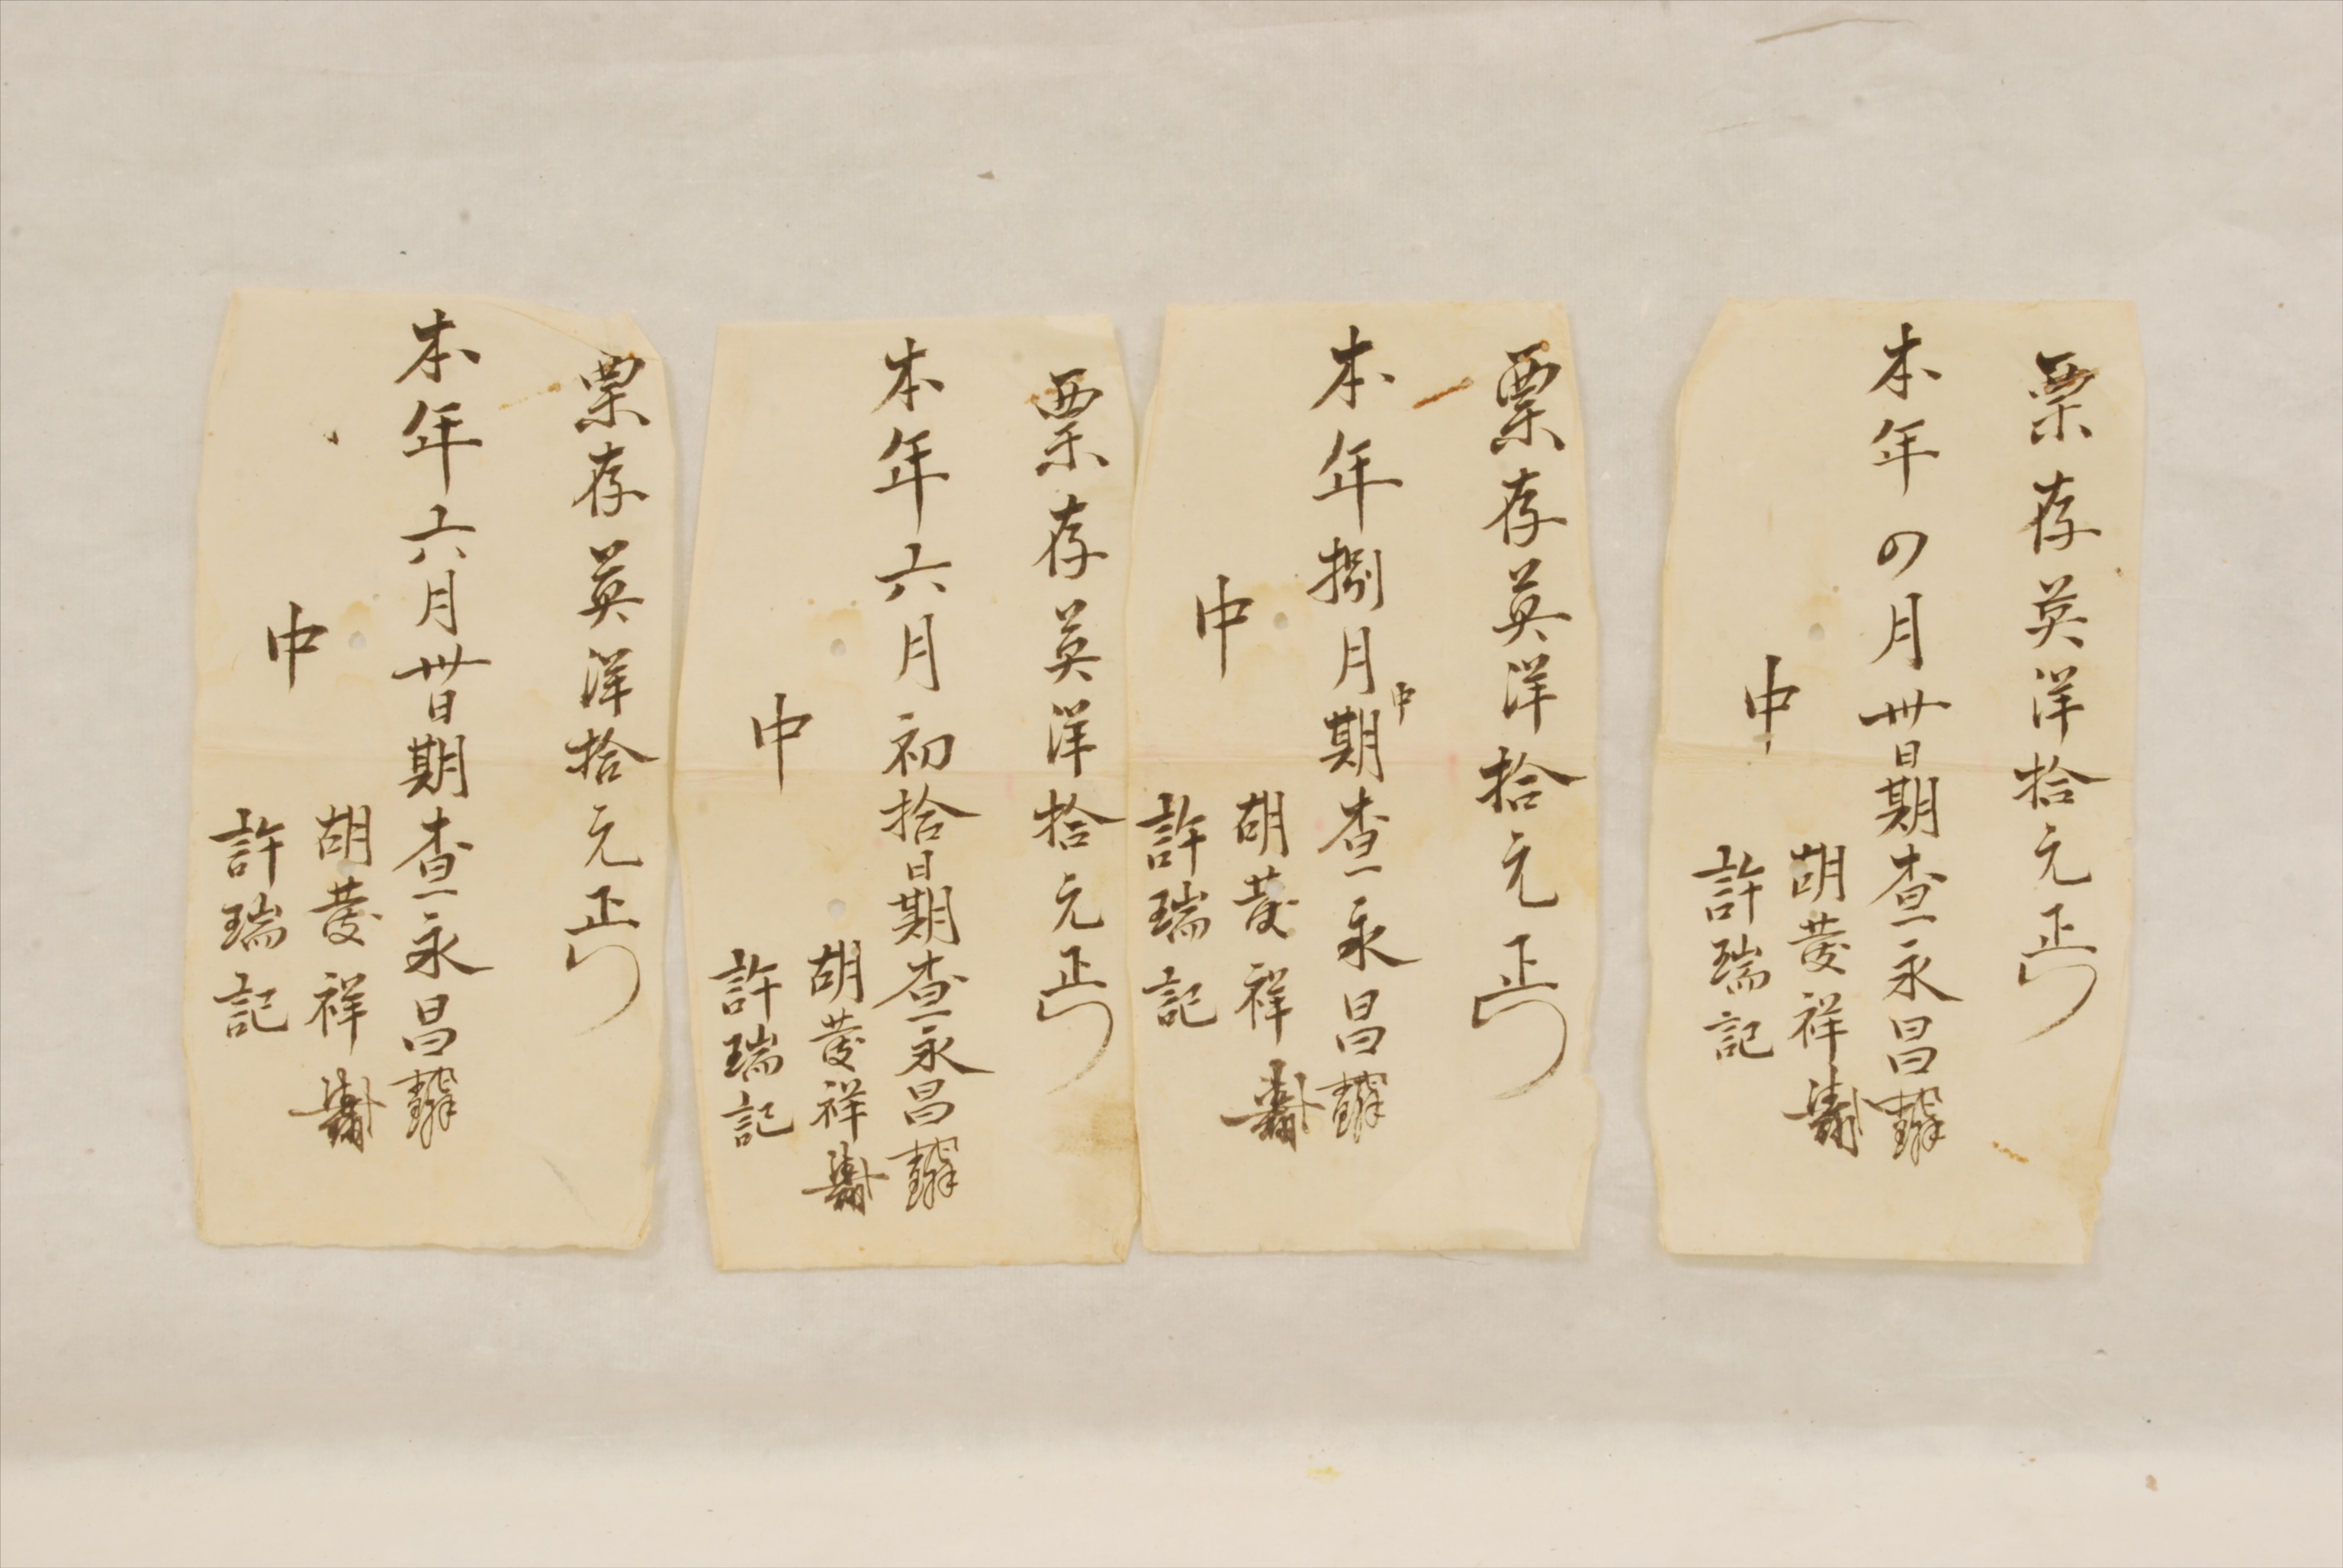 票存英洋拾元正
本年四月卅日期查永昌
胡發祥
中
許瑞記
票存英洋拾元正
本年捌月中期查永昌
胡發祥
中
許瑞記
票存英洋拾元正
本年六月初拾日期查永昌
胡發祥
中
許瑞記
票存英洋拾元正
本年六月卅日期查永昌
胡發祥
中
許瑞記